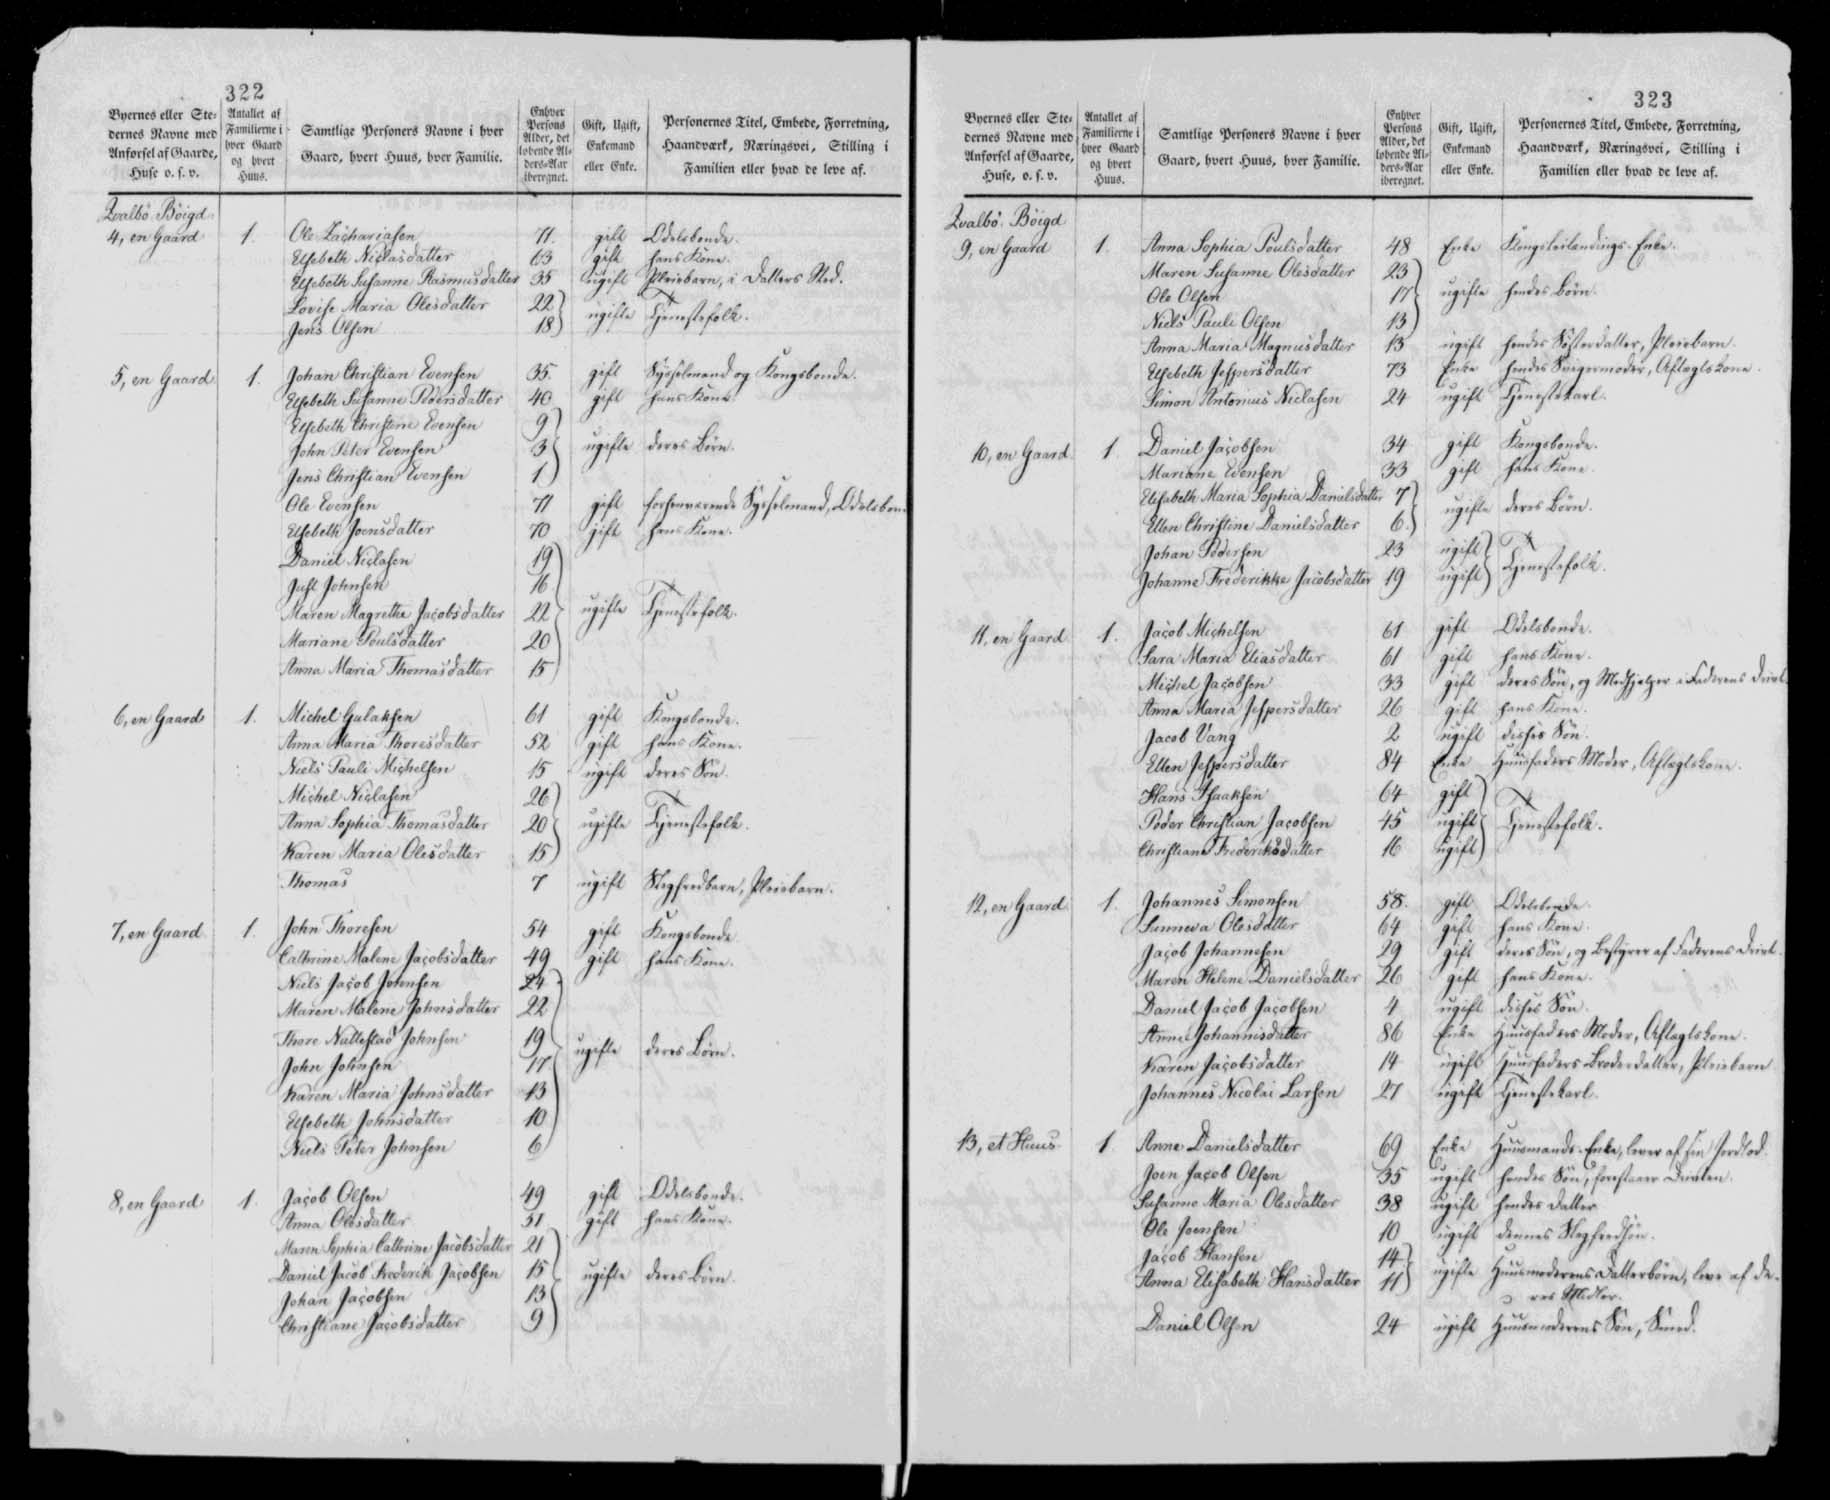 322
Byernes eller Ste-
dernes Navne med
Anførsel af Gaarde,
Huse o. s. v.
Antallet af
Familierne i
hver Gaard
og hvert
Huus.
Samtlige Personers Navne i hver
Gaard, hvert Huus, hver Familie.
Enhver
Persons
Alder, det
løbende Al-
ders-Aar
iberegnet.
Gift, Ugift,
Enkemand
eller Enke.
Personernes Titel, Embede, Forretning,
Haandværk, Næringsvei, Stilling i
Familien eller hvad de leve af.
Qvalbö Böigd
4, en Gaard 1. Ole Zachariasen 71. gift Odelsbonde.
Elsebeth Niclasdatter 63 gift hans Kone.
Elsebeth Susanne Rasmusdatter 35 ugift Pleiebarn, i Datters Sted.
Lovise Maria Olesdatter 22 ugifte Tjenestefolk.
Jens Olsen 18
5, en Gaard 1. Johan Christian Evensen 35. gift Sysselmand og Kongsbonde.
Elsebeth Susanne Pedersdatter 40 gift hans Kone
Elsebeth Christine Evensen 9
John Peter Evensen 3 ugifte deres Börn.
Jens Christian Evensen 1
Ole Evensen 71 gift forhenværende Sysselmand, Odelsbon
Elsebeth Joensdatter 70 gift hans Kone.
Daniel Niclasen 19
Just Johnsen 16
Maren Magrethe Jacobsdatter 22 ugifte Tjenestefolk.
Mariane Poulsdatter 20
Anna Maria Thomasdatter 15
6, en Gaard 1. Michel Gulaksen 61 gift Kongsbonde.
Anna Maria Thoresdatter 52 gift hans Kone.
Niels Pauli Michelsen 15 ugift deres Sön.
Michel Niclasen 26
Anna Sophia Thomasdatter 20 ugifte Tjenestefolk.
Karen Maria Olesdatter 15
Thomas 7 ugift Slegfredbarn, Pleiebarn.
7, en Gaard 1. John Thoresen 54 gift Kongsbonde
Cathrine Malene Jacobsdatter 49 gift hans Kone.
Niels Jacob Johnsen 24
Maren Malene Johnsdatter 22
Thore Nattestad Johnsen 19 ugifte deres Börn.
John Johnsen 17
Karen Maria Johnsdatter 13
Elsebeth Johnsdatter 10
Niels Peter Johnsen 6
8, en Gaard 1. Jacob Olsen 49 gift Odelsbonde.
Anna Olesdatter 51 gift hans Kone.
Maren Sophia Cathrine Jacobsdatter 21
Daniel Jacob Frederik Jacobsen 15 ugifte deres Börn.
Johan Jacobsen 13
Christiane Jacobsdatter 9
323
Byernes eller Ste-
dernes Navne med
Anførsel af Gaarde,
Huse, o. s. v.
Antallet af
Familierne i
hver Gaard
og hvert
Huus.
Samtlige Personers Navne i hver
Gaard, hvert Huus, hver Familie.
Enhver
Persons
Alder, det
løbende Al-
ders-Aar
iberegnet.
Gift, Ugift,
Enkemand
eller Enke.
Personernes Titel, Embede, Forretning,
Haandværk, Næringsvei, Stilling i
Familien eller hvad de leve af.
Qvalbö Böigd
9, en Gaard 1. Anna Sophia Poulsdatter 48 Enke Enke.
Maren Susanne Olesdatter 23
Ole Olsen 17 ugifte hendes Börn.
Niels Pauli Olsen 13
Anna Maria Magnusdatter 13 ugift hendes Sösterdatter, Pleiebarn.
Elsebeth Jespersdatter 73 Enke hendes Svigermoder, Aftægtskone.
Simon Antonius Niclasen 24 ugift Tjenestekarl.
10, en Gaard 1. Daniel Jacobsen 34 gift Kongsbonde.
Mariane Evensen 33 gift hans Kone.
Elisabeth Maria Sophia Danielsdatter 7 ugifte deres Börn.
Ellen Christine Danielsdatter 6.
Johan Pedersen 23 ugift Tjenestefolk.
Johanne Frederikke Jacobsdatter 19 ugift
11, en Gaard 1. Jacob Michelsen 61 gift Odelsbonde.
Sara Maria Eliasdatter 61 gift hans Kone.
Michel Jacobsen 33 gift deres Sön, og Medhjelper i Faderens Drivt.
Anna Maria Jespersdatter 26 gift hans Kone.
Jacob Vang 2 ugift disses Sön.
Ellen Jespersdatter 84 Enke Huusfaders Moder, Aftægtskone.
Hans Isaaksen 64 gift
Peder Christian Jacobsen 45 ugift Tjenestefolk.
Christiane Frederiksdatter 16 ugift
12, en Gaard 1. Johannes Simonsen 58. gift Odelsbonde.
Sunneva Olesdatter 64 gift hans Kone.
Jacob Johannesen 29 gift deres Sön, og Bestyrer af Faderens Drivt.
Maren Helene Danielsdatter 26 gift hans Kone.
Daniel Jacob Jacobsen 4 ugift disses Sön.
Anne Johannisdatter 86 Enke Huusfaders Moder, Aftægtskone.
Karen Jacobsdatter 14 ugift Huusfaders Broderdatter, Pleiebarn
Johannes Nicolai Larsen 27 ugift Tjenestekarl.
13, et Huus 1. Anne Danielsdatter 69 Enke Huusmands-Enke, lever af sin Jordlod.
Joen Jacob Olsen 35 ugift hendes Sön, forestaaer Drivten.
Susanne Maria Olesdatter 38 ugift hendes Datter
Ole Joensen 10 ugift dennes Slegfredsön.
Jacob Hansen 14 ugifte Huusmoderens Datterbörn, leve af de-
Anna Elisabeth Hansdatter 11 res Midler.
Daniel Olsen 24 ugift Huusmoderens Sön, Smed.